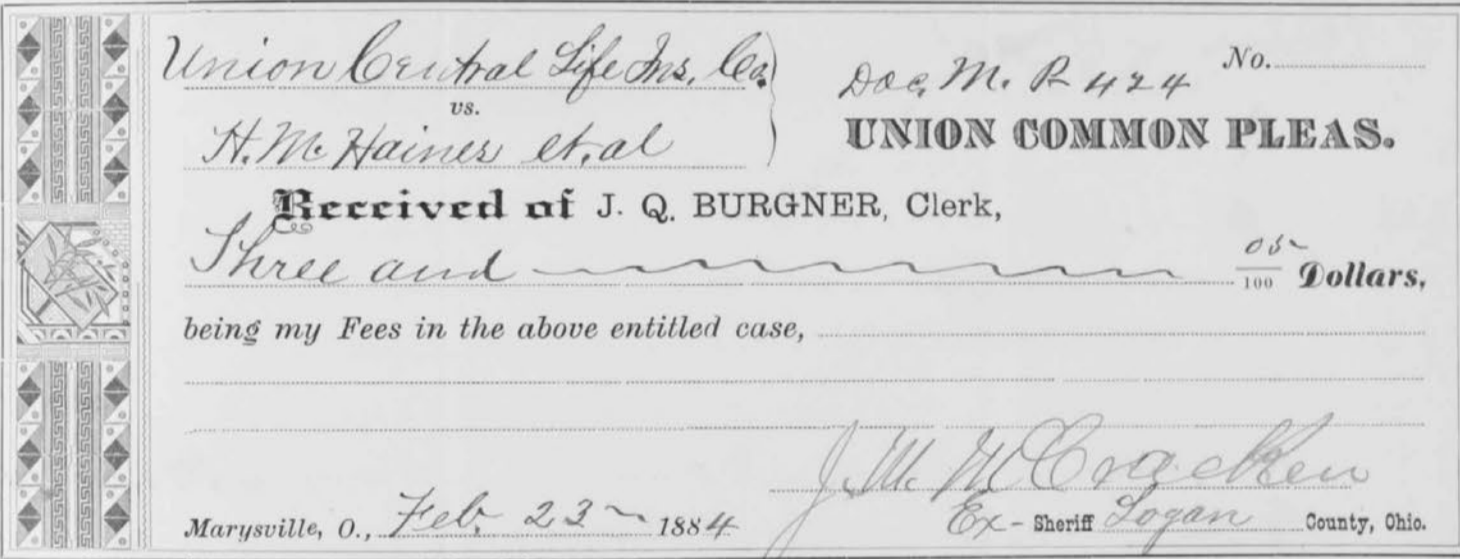 Union Central Life Ins. Co.
Doc. M. P 424 No.
vs.
UNION COMMON PLEAS.
H. M. Hainer et. al
Received of J. Q. BURGNER, Clerk,
Three and 05/100 Dollars,
being my Fees in the above entitled case,
J. M. McCracken
Marysville, O., Feb. 23 1884
Ex- Sheriff Logan County, Ohio.